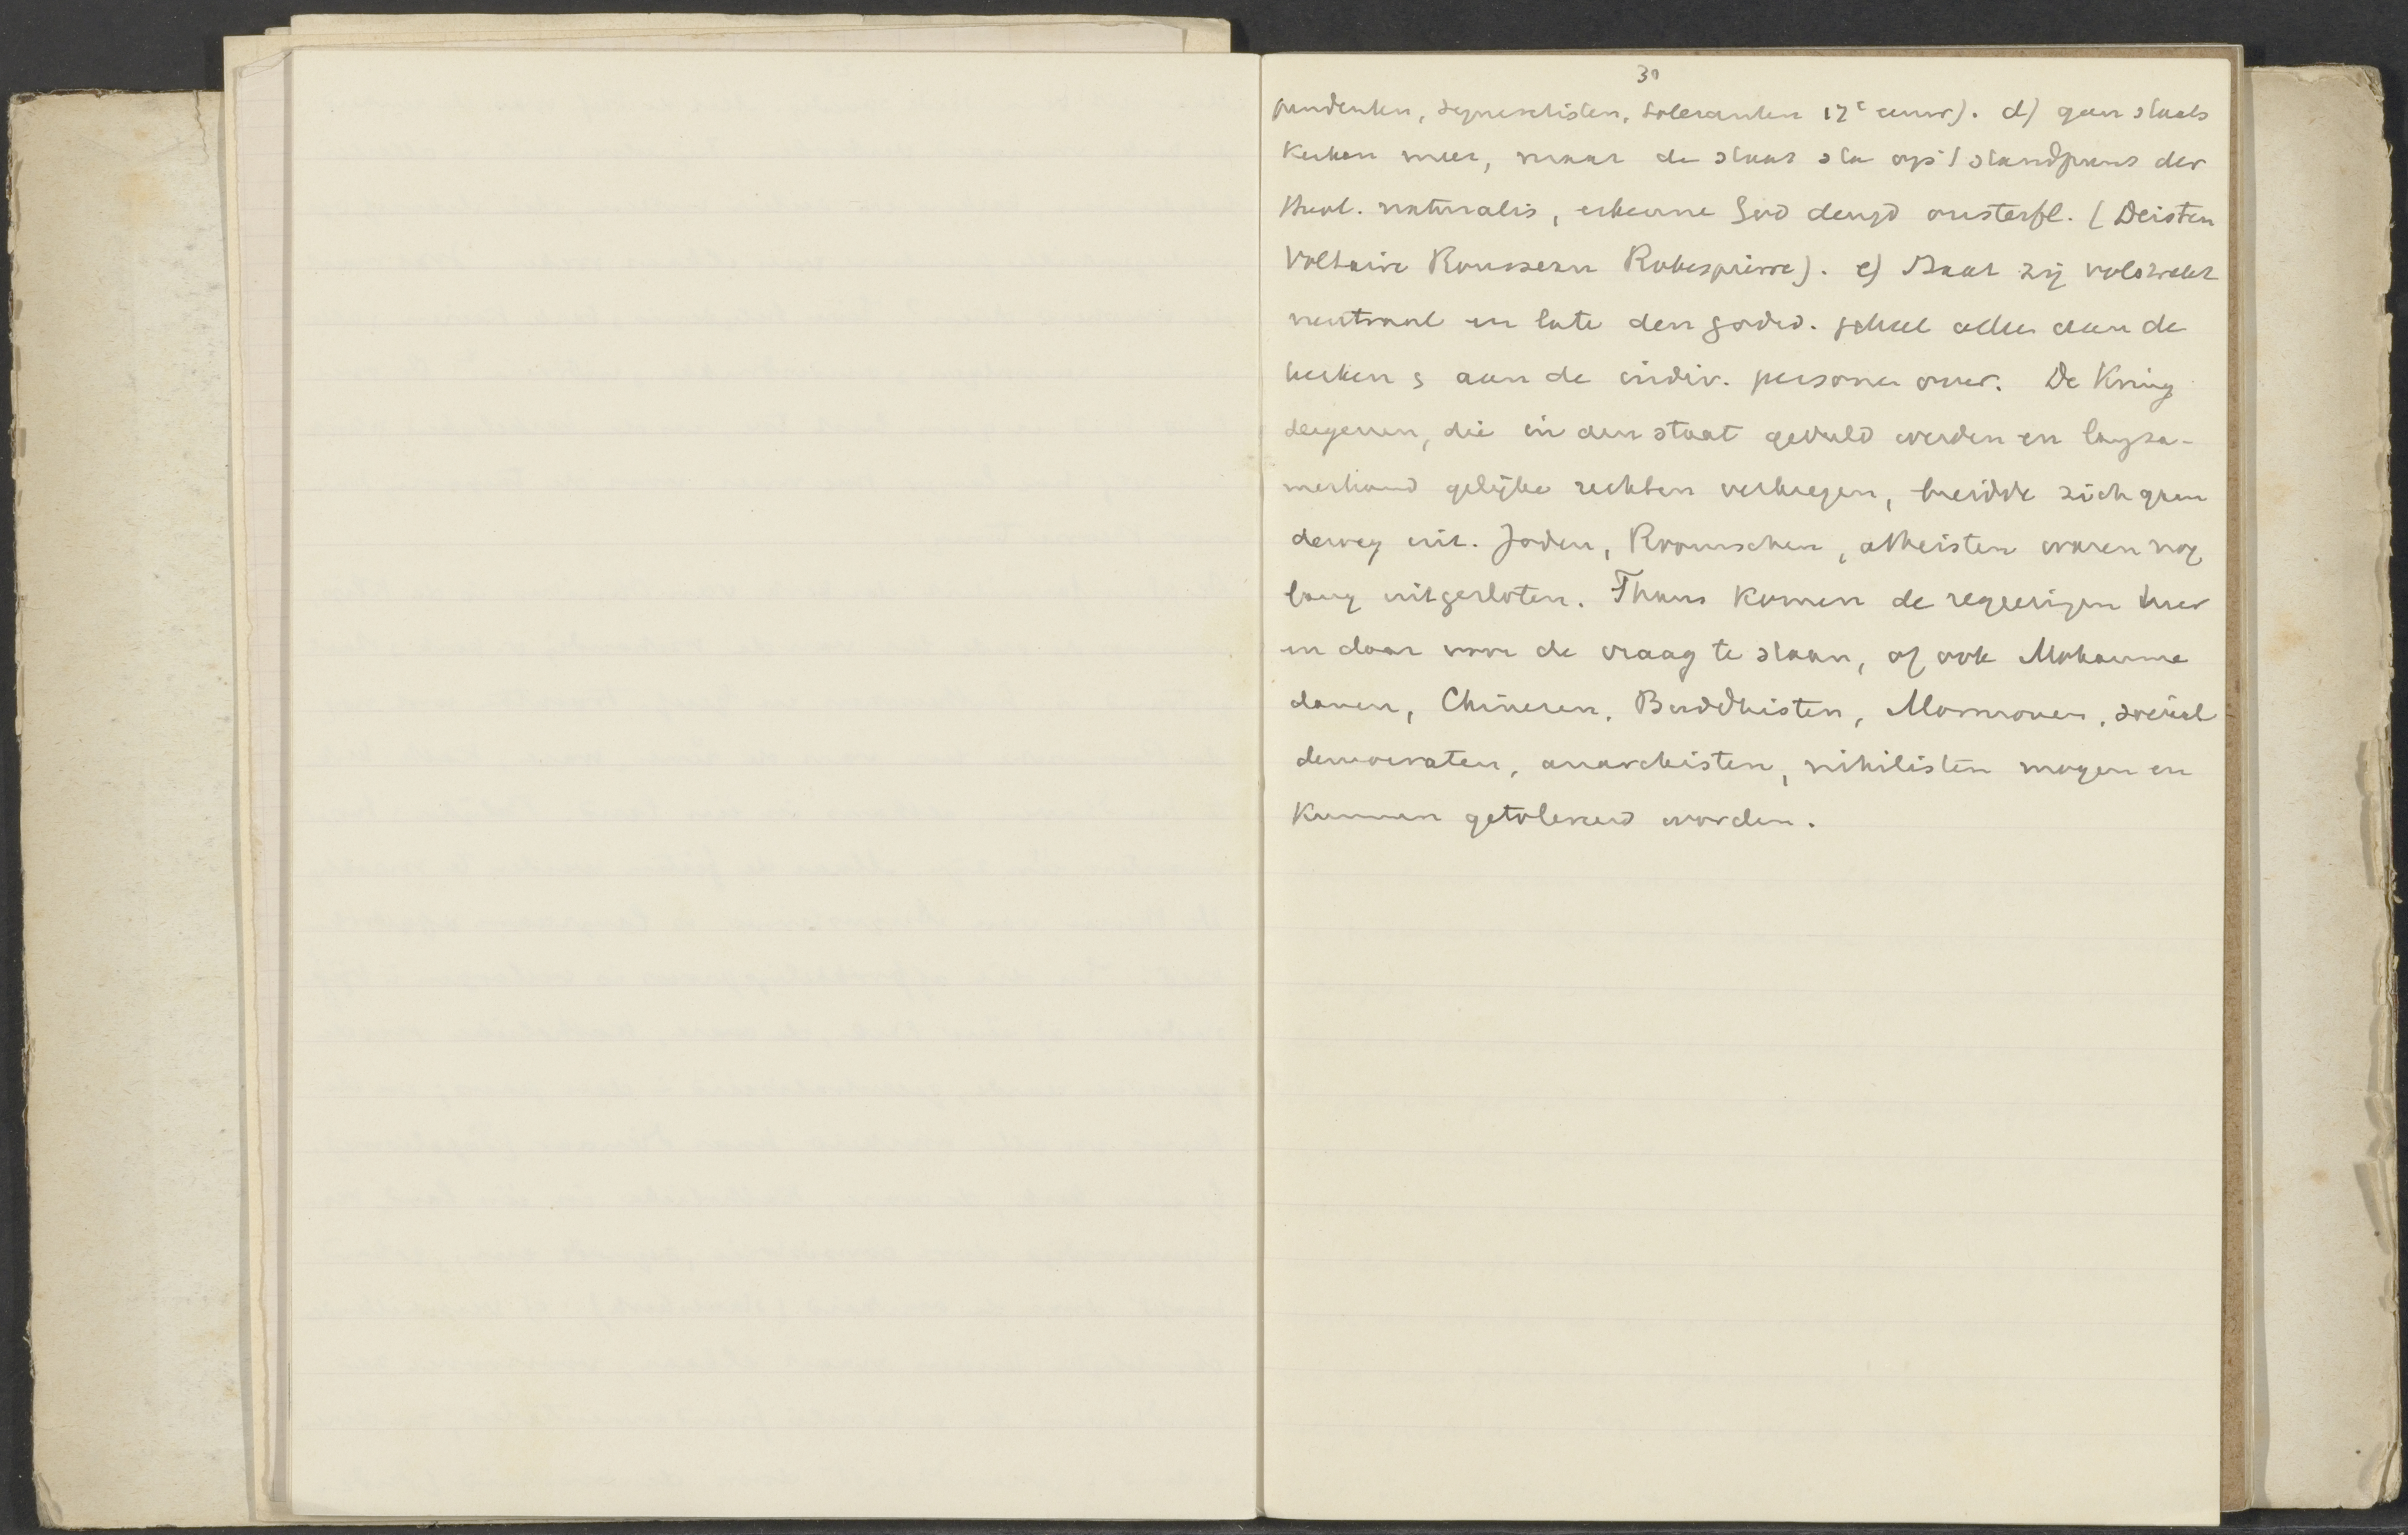 30
pendenten, syncretisten, toleranten 17e eeuw). d) geen staats
kerken meer, maar de staat sta op 't standpunt der
theol. naturalis, erkenne God deugd onsterfl. (Deisten
Voltaire Rousseau Robespierre). e) Staat zij volstrekt
neutraal en late den godsd. geheel alleen aan de
kerken & aan de indiv. personen over. De Kring
dergenen, die in den staat geduld werden en langza-
merhand gelijke rechten verkregen, breidde zich gaan
deweg uit. Joden, Roomschen, atheisten waren nog
lang uitgesloten. Thans komen de regeeringen hier
en daar voor de vraag te staan, of ook Mohamme
danen, Chineezen, Buddhisten, Mormonen, sociaal
democraten, anarchisten, nihilisten mogen en
kunnen getolereerd worden.